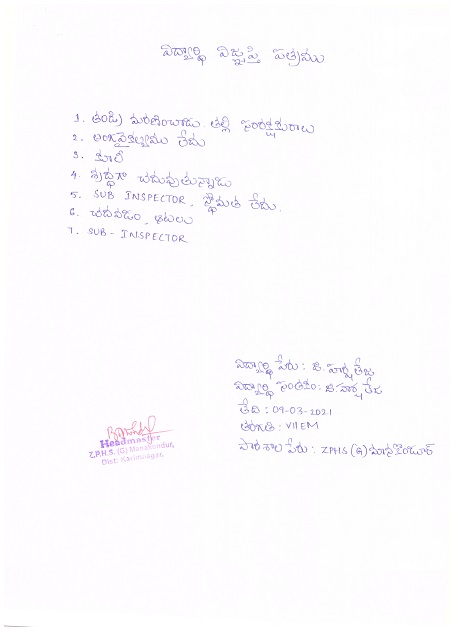 విద్యార్థి విజ్ఞప్తి పత్రము
1. తండ్రి మరణించాడు. తల్లి సంరక్షకురాలు
2. అంగవైకల్యము లేదు
3. కూలీ
4. శ్రద్ధగా చదువుతున్నాడు
5. SUB INSPECTOR, స్థోమత లేదు.
6. చదవడం, ఆటలు
7. SUB-INSPECTOR
విద్యార్థి పేరు: బి. హర్ష తేజ
విద్యార్థి సంతకం: బి. హర్ష తేజ
తేది: 09-03-2021
తరగతి: VII EM
పాఠశాల పేరు: ZPHS (G) మానకొండూర్
Headmaster
Z.P.H.S. (G) Manakondur,
Dist: Karimnagar.